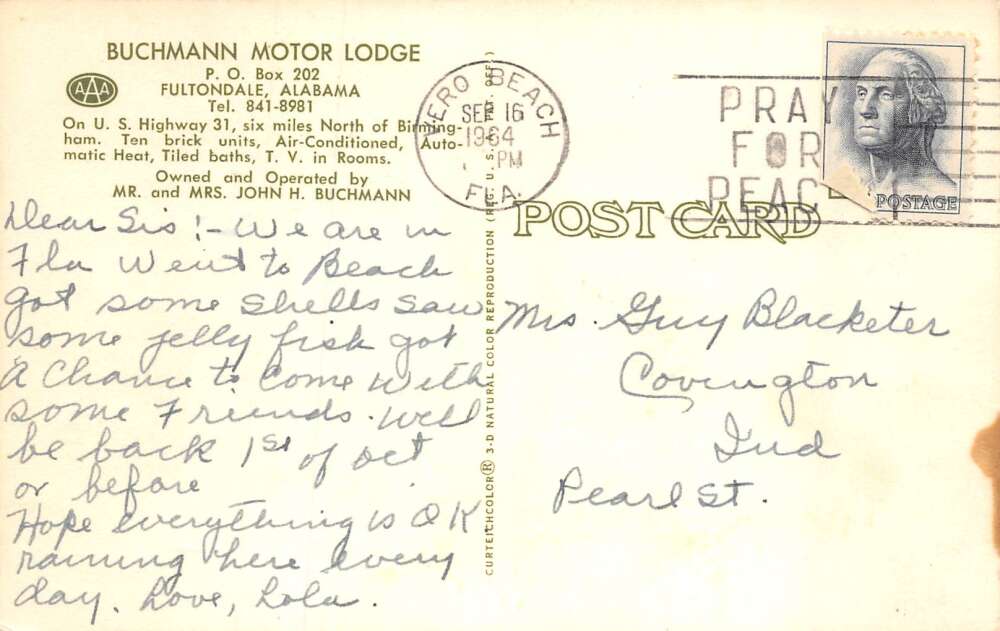 BUCHMANN MOTOR LODGE
P. O. Box 202
FULTONDALE, ALABAMA
Tel. 841-8981
AAA
On U. S. Highway 31, six miles North of Birming-
ham. Ten brick units, Air-Conditioned, Auto-
matic Heat, Tiled baths, T. V. in Rooms.
Owned and Operated by
MR. and MRS. JOHN H. BUCHMANN
VERO BEACH
SEP 16
1964
PM
FLA.
PRAY
FOR
PEACE
POSTAGE
POST CARD
Dear Sis! - We are in
Fla Went to Beach
got some shells saw
some jelly fish got
A Chance to Come with
some Friends. Will
be back 1st of oct
or before
Hope everything is OK
raining here every
day. Love, Lola.
Mrs. Guy Blacketer
Covington
Ind
Pearl St.
CURTEICHCOLOR® 3-D NATURAL COLOR REPRODUCTION (REG. U. S. PAT. OFF.)